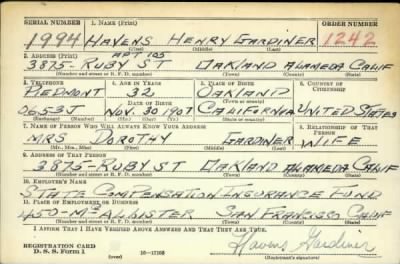 SERIAL NUMBER 1. NAME (Print) ORDER NUMBER
1994 HAVENS HENRY GARDINER 1242
(First) (Middle) (Last)
2. ADDRESS (Print) APT 105
3875-RUBY ST OAKLAND ALAMEDA CALIF
(Number and street or R. F. D. number) (Town) (County) (State)
3. TELEPHONE 4. AGE IN YEARS 5. PLACE OF BIRTH 6. COUNTRY OF CITIZENSHIP
PIEDMONT 32 OAKLAND
DATE OF BIRTH (Town or county)
0653J NOV. 30 1907 CALIFORNIA UNITED STATES
(Exchange) (Number) (Mo.) (Day) (Yr.) (State or country)
7. NAME OF PERSON WHO WILL ALWAYS KNOW YOUR ADDRESS 8. RELATIONSHIP OF THAT PERSON
MRS DOROTHY GARDINER WIFE
(Mr., Mrs., Miss) (First) (Middle) (Last)
9. ADDRESS OF THAT PERSON
3875-RUBY ST OAKLAND ALAMEDA CALIF
(Number and street or R. F. D. number) (Town) (County) (State)
10. EMPLOYER'S NAME
STATE COMPENSATION INSURANCE FUND
11. PLACE OF EMPLOYMENT OR BUSINESS
450-McALLISTER SAN FRANCISCO CALIF
(Number and street or R. F. D. number) (Town) (County) (State)
I AFFIRM THAT I HAVE VERIFIED ABOVE ANSWERS AND THAT THEY ARE TRUE.
REGISTRATION CARD
D. S. S. Form 1 (over) 16—17105 Havens Gardiner
(Registrant's signature)